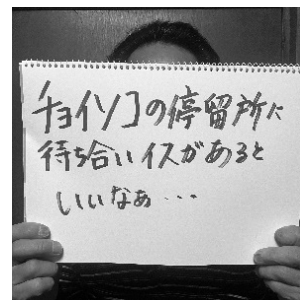 チョイソコの停留所に
待ち合いイスがあると
いいなぁ・・・